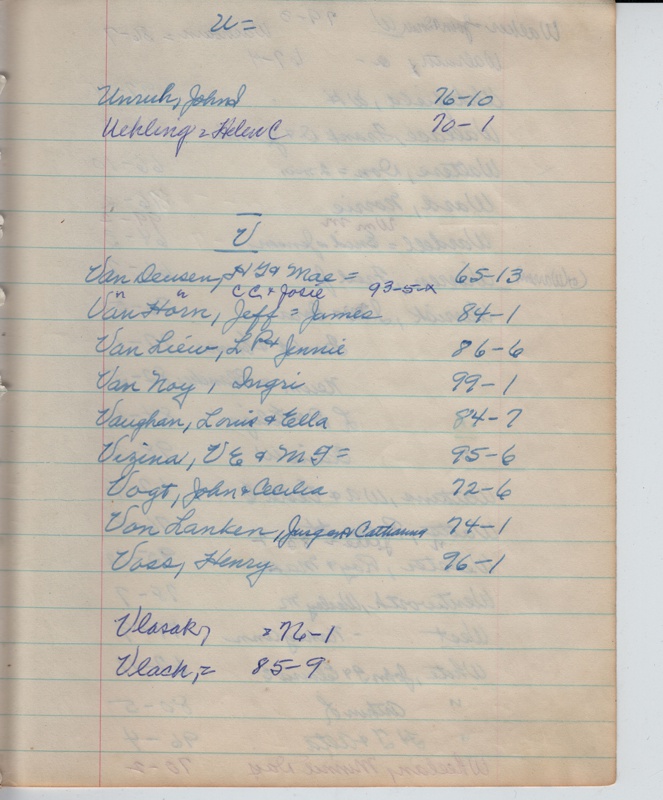 U=
Unruh, John J 76-10
Uehling = Helen C 70-1
V
Van Deusen, H G & Mae = 65-13
" " C C & Josie 93-5-x
Van Horn, Jeff = James 84-1
Van Liew, L P & Jennie 86-6
Van Noy, Ingri 99-1
Vaughan, Louis & Ella 84-7
Vizina, V E & M F = 95-6
Vogt, John & Cecilia 72-6
Von Lanken, Jurgen & Catharina 74-1
Voss, Henry 96-1
Vlasak, = 76-1
Vlach, = 85-9